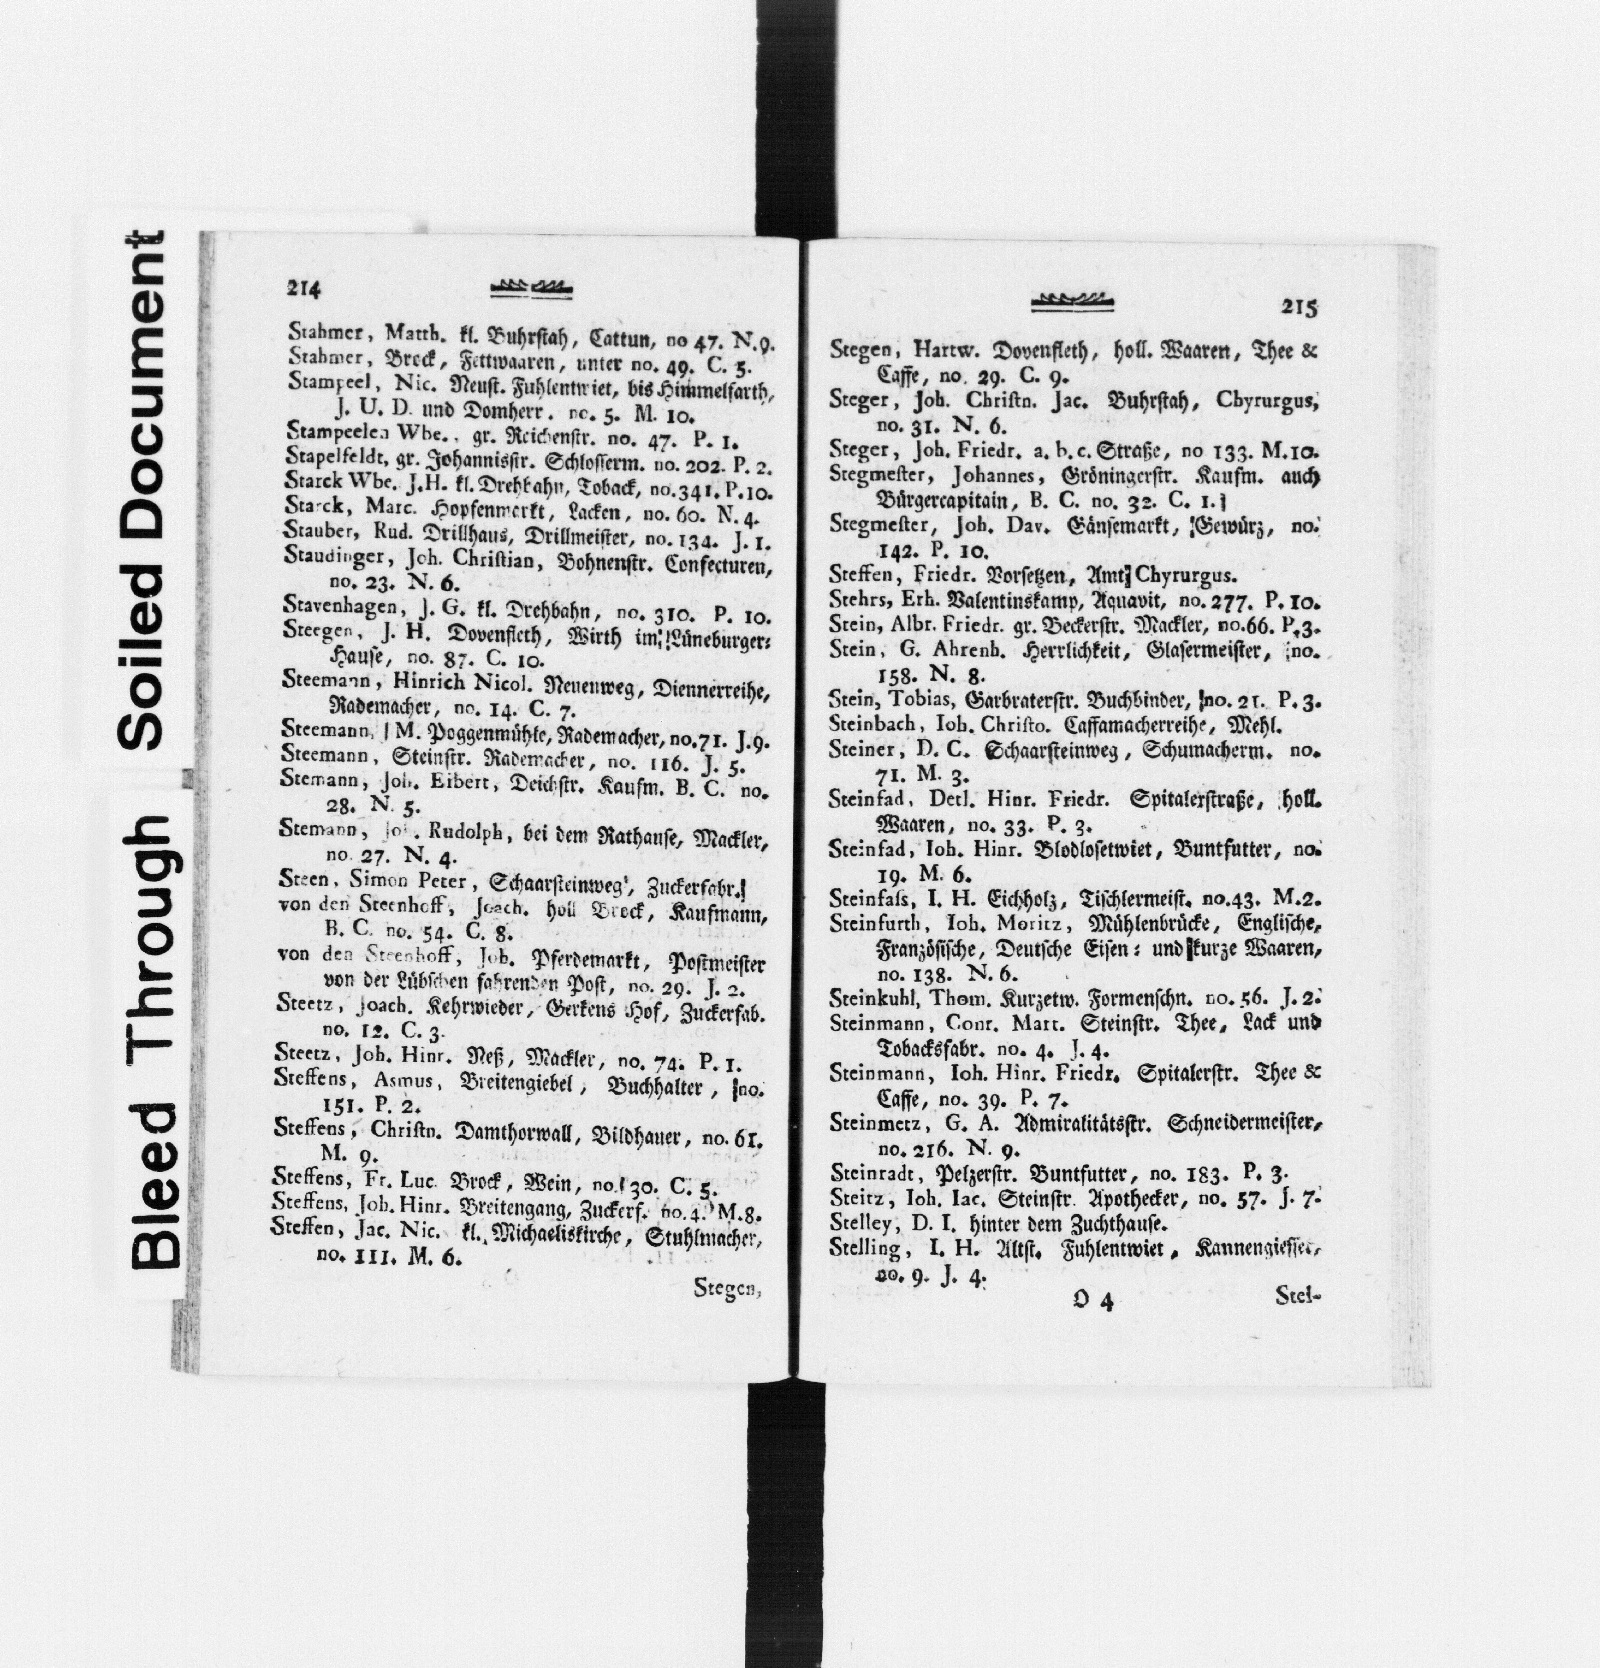 Bleed Through Soiled Document
214
Stahmer, Matth. kl. Buhrstah, Cattun, no 47. N. 9.
Stahmer, Brock, Fettwaaren, unter no. 49. C. 5.
Stampeel, Nic. Neust. Fuhlentwiet, bis Himmelfarth,
J. U. D. und Domherr. no. 5. M. 10.
Stampeelen Wbe., gr. Reichenstr. no. 47. P. 1.
Stapelfeldt, gr. Johannisstr. Schlosserm. no. 202. P. 2.
Starck Wbe. J.H. kl. Drehbahn, Toback, no. 341. P. 10.
Starck, Marc. Hopfenmarkt, Lacken, no. 60. N. 4.
Stauber, Rud. Drillhaus, Drillmeister, no. 134. J. 1.
Staudinger, Joh. Christian, Bohnenstr. Confecturen,
no. 23. N. 6.
Stavenhagen, J. G. kl. Drehbahn, no. 310. P. 10.
Steegen, J. H. Dovenfleth, Wirth im Lüneburger-
Hause, no. 87. C. 10.
Steemann, Hinrich Nicol. Neuenweg, Diennerreihe,
Rademacher, no. 14. C. 7.
Steemann, M. Poggenmühle, Rademacher, no. 71. J. 9.
Steemann, Steinstr. Rademacher, no. 116. J. 5.
Stemann, Joh. Eibert, Deichstr. Kaufm. B. C. no.
28. N. 5.
Stemann, Joh. Rudolph, bei dem Rathause, Mackler,
no. 27. N. 4.
Steen, Simon Peter, Schaarsteinweg, Zuckerfabr.
von den Steenhoff, Joach. holl Brock, Kaufmann,
B. C. no. 54. C. 8.
von den Steenhoff, Joh. Pferdemarkt, Postmeister
von der Lübschen fahrenden Post, no. 29. J. 2.
Steetz, Joach. Kehrwieder, Gerkens Hof, Zuckerfab.
no. 12. C. 3.
Steetz, Joh. Hinr. Neß, Mackler, no. 74. P. 1.
Steffens, Asmus, Breitengiebel, Buchhalter, no.
151. P. 2.
Steffens, Christn. Damthorwall, Bildhauer, no. 61.
M. 9.
Steffens, Fr. Luc. Brock, Wein, no. 30. C. 5.
Steffens, Joh. Hinr. Breitengang, Zuckerf. no. 4. M. 8.
Steffen, Jac. Nic. kl. Michaeliskirche, Stuhlmacher,
no. 111. M. 6.
Stegen,
215
Stegen, Hartw. Dovenfleth, holl. Waaren, Thee &
Caffe, no. 29. C. 9.
Steger, Joh. Christn. Jac. Buhrstah, Chyrurgus,
no. 31. N. 6.
Steger, Joh. Friedr. a. b. c. Straße, no 133. M. 10.
Stegmester, Johannes, Gröningerstr. Kaufm. auch
Bürgercapitain, B. C. no. 32. C. 1.
Stegmester, Joh. Dav. Gänsemarkt, Gewürz, no.
142. P. 10.
Steffen, Friedr. Vorsetzen, Amt Chyrurgus.
Stehrs, Erh. Valentinskamp, Aquavit, no. 277. P. 10.
Stein, Albr. Friedr. gr. Beckerstr. Mackler, no. 66. P. 3.
Stein, G. Ahrenh. Herrlichkeit, Glasermeister, no.
158. N. 8.
Stein, Tobias, Garbraterstr. Buchbinder, no. 21. P. 3.
Steinbach, Ioh. Christo. Caffamacherreihe, Mehl.
Steiner, D. C. Schaarsteinweg, Schumacherm. no.
71. M. 3.
Steinfad, Detl. Hinr. Friedr. Spitalerstraße, holl.
Waaren, no. 33. P. 3.
Steinfad, Ioh. Hinr. Blodlosetwiet, Buntfutter, no.
19. M. 6.
Steinfass, I. H. Eichholz, Tischlermeist. no. 43. M. 2.
Steinfurth, Ioh. Moritz, Mühlenbrücke, Englische,
Französische, Deutsche Eisen- und kurze Waaren,
no. 138. N. 6.
Steinkuhl, Thom. Kurzetw. Formenschn. no. 56. J. 2.
Steinmann, Conr. Matt. Steinstr. Thee, Lack und
Tobacksfabr. no. 4. J. 4.
Steinmann, Ioh. Hinr. Friedr. Spitalerstr. Thee &
Caffe, no. 39. P. 7.
Steinmetz, G. A. Admiralitätsstr. Schneidermeister,
no. 216. N. 9.
Steinradt, Pelzerstr. Buntfutter, no. 183. P. 3.
Steitz, Ioh. Iac. Steinstr. Apothecker, no. 57. J. 7.
Stelley, D. I. hinter dem Zuchthause.
Stelling, I. H. Altst. Fuhlentwiet, Kannengiesser,
no. 9. J. 4.
O 4
Stel-